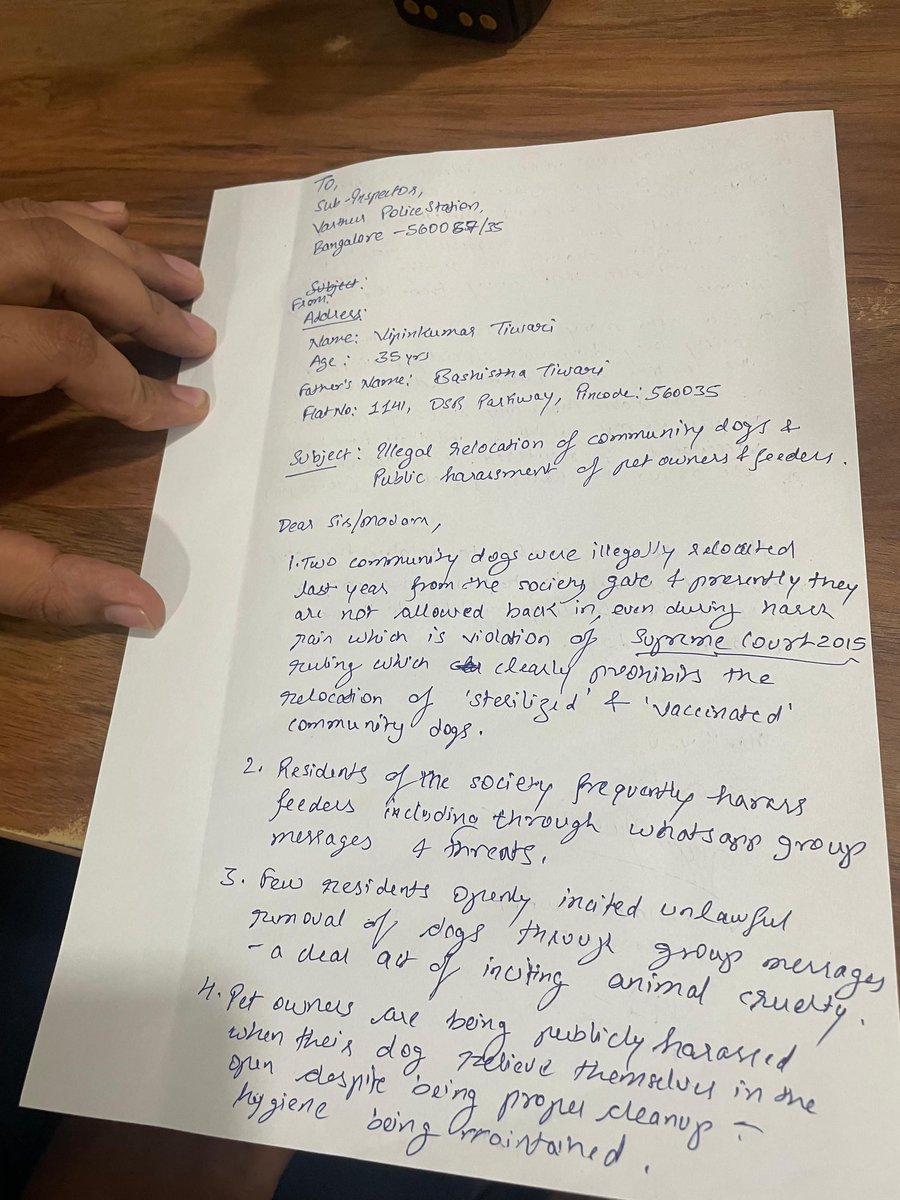 To,
Sub-Inspector,
Varthur Police Station,
Bangalore - 560087/35
Subject:
From:
Address:
Name: Vipinkumar Tiwari
Age: 35 yrs
Father's Name: Bashistha Tiwari
Flat No: 1141, DSR Parkway, Pincode: 560035
Subject: Illegal relocation of community dogs &
Public harassment of pet owners & feeders.
Dear Sir/Madam,
1. Two community dogs were illegally relocated
last year from the society gate & presently they
are not allowed back in, even during harsh
rain which is violation of Supreme Court 2015
ruling which clearly prohibits the
relocation of 'sterilized' & 'vaccinated'
community dogs.
2. Residents of the society frequently harass
feeders including through whatsapp group
messages & threats.
3. Few residents openly incited unlawful
removal of dogs through group messages
- a clear act of inciting animal cruelty.
4. Pet owners are being publicly harassed
when their dog relieve themselves in the
open despite being proper cleanup -
hygiene being maintained.